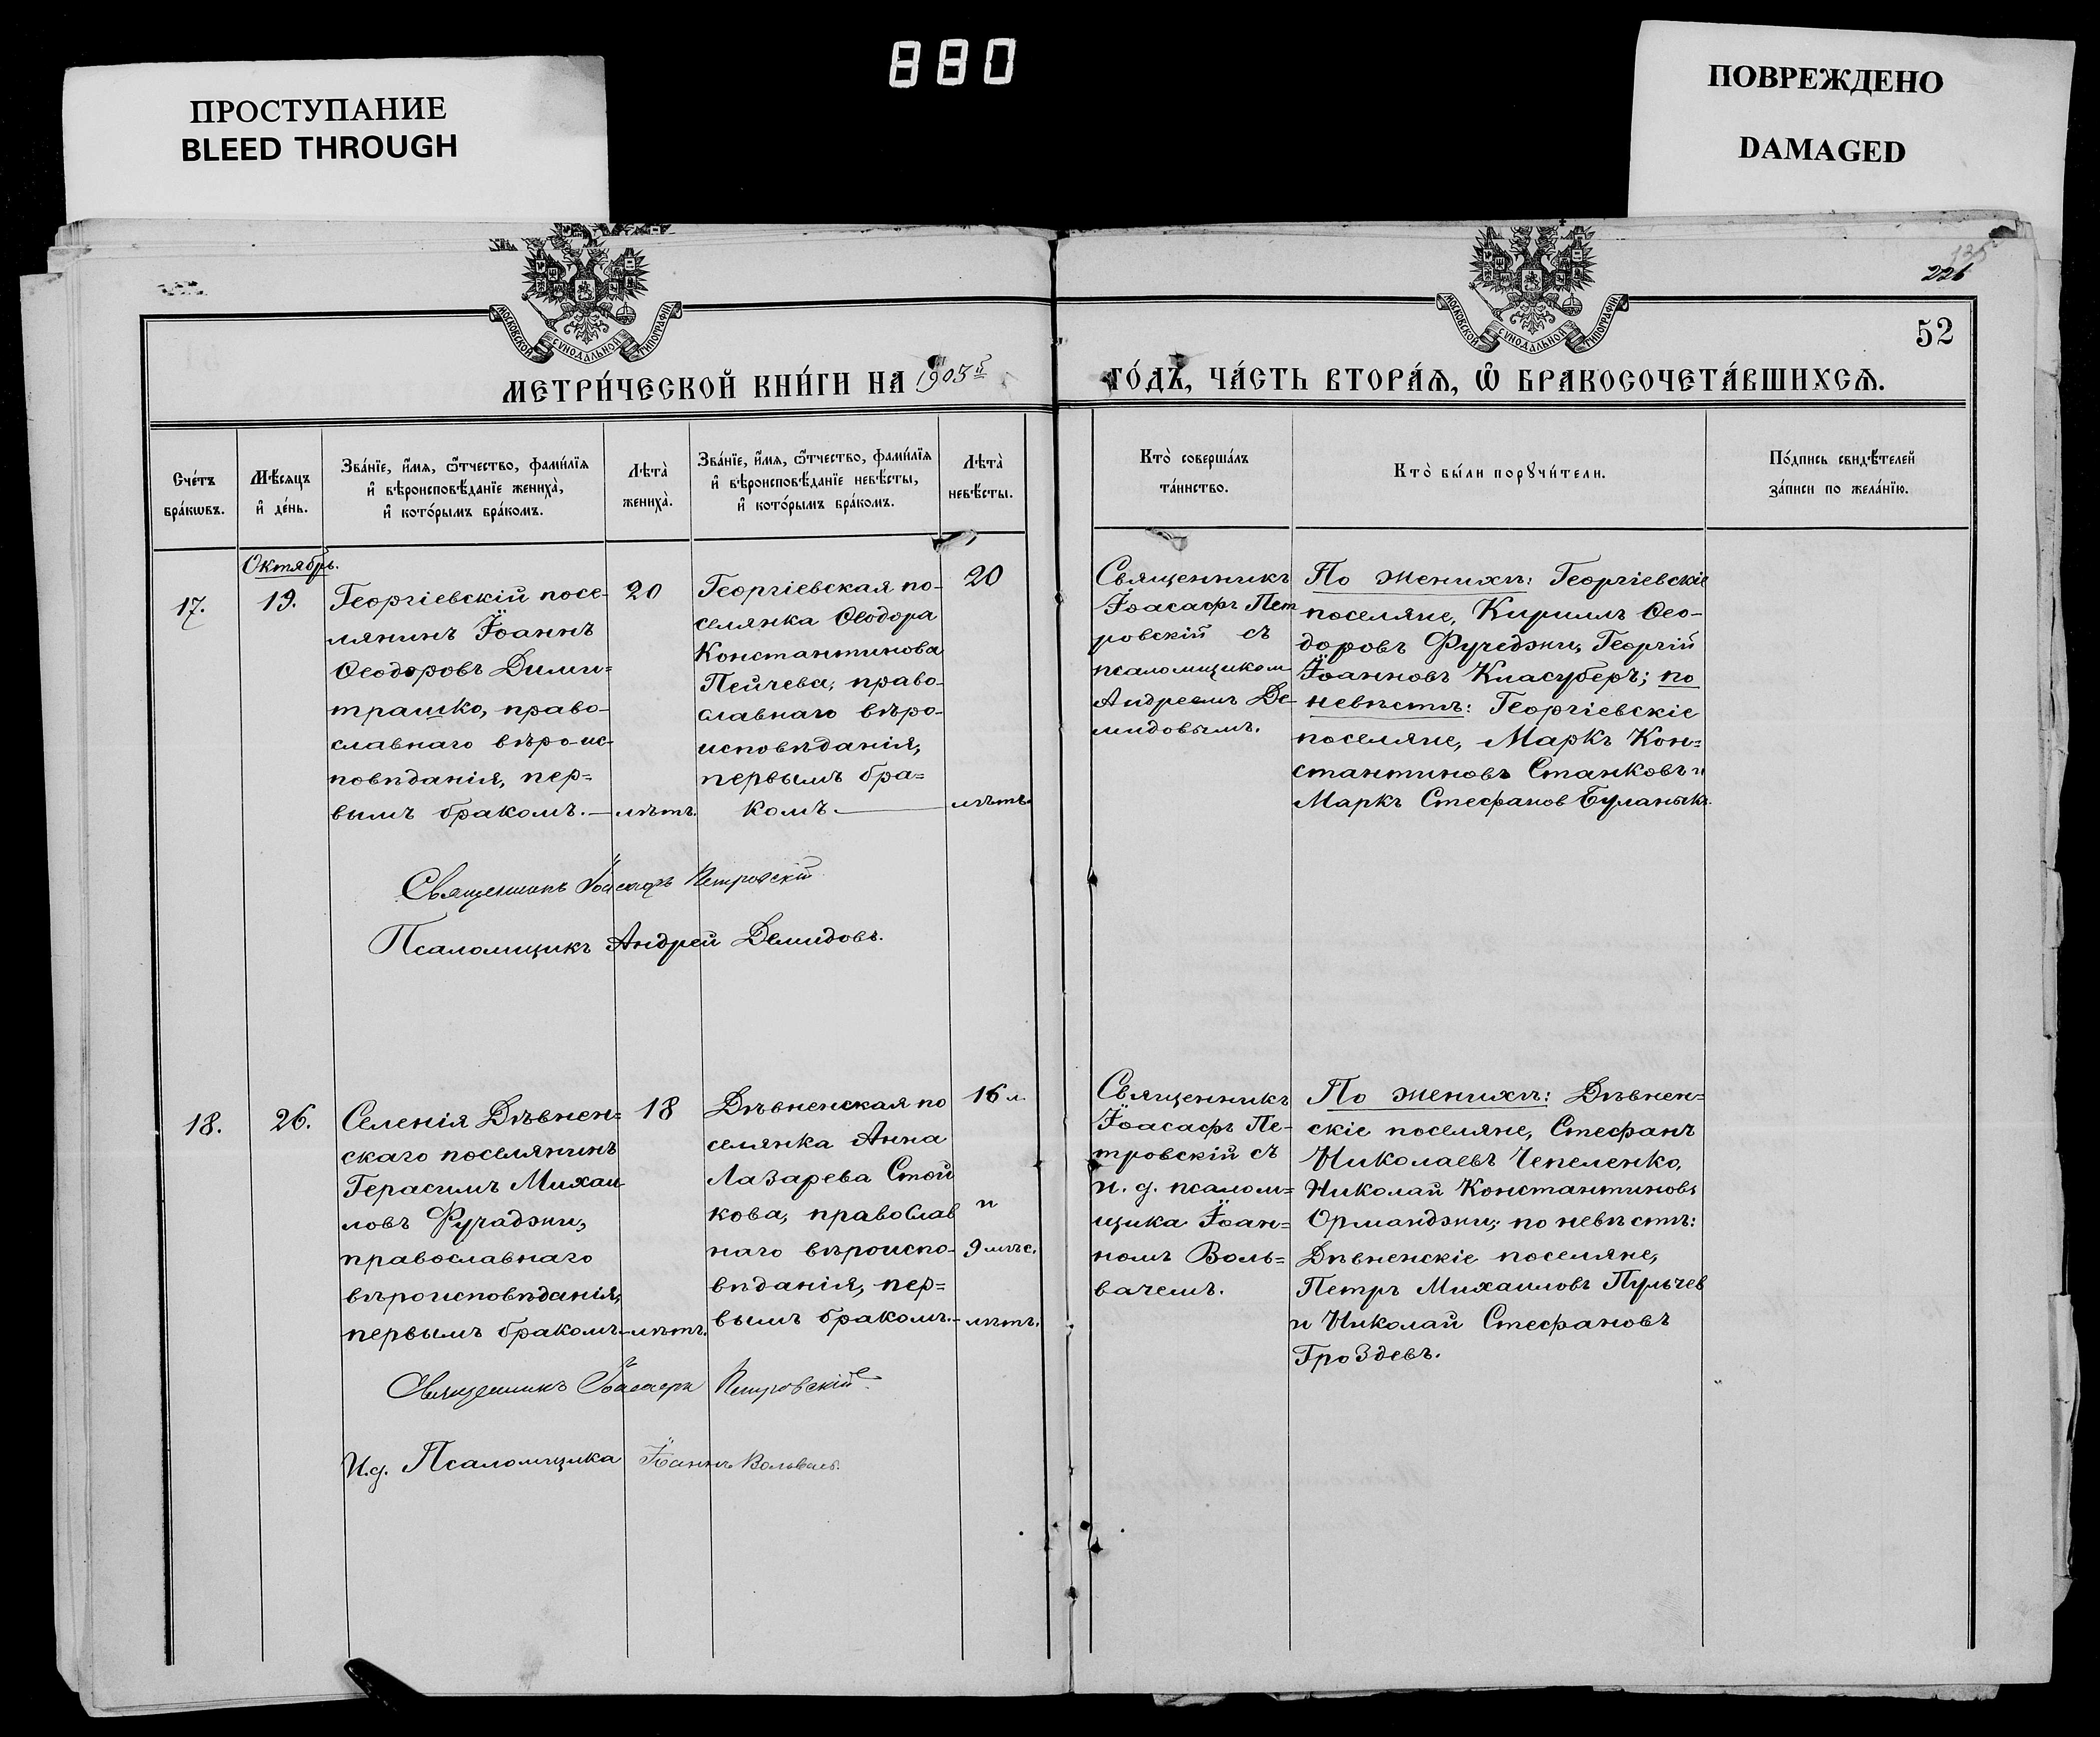 880
ПРОСТУПАНИЕ
BLEED THROUGH
ПОВРЕЖДЕНО
DAMAGED
226
52
МОСКОВСКОЙ СѴНОДАЛЬНОЙ ТИПОГРАФІИ
МОСКОВСКОЙ СѴНОДАЛЬНОЙ ТИПОГРАФІИ
МЕТРИ́ЧЕСКОЙ КНИ́ГИ НА 1903й
ГО́ДЪ, ЧА́СТЬ ВТОРА́Ѧ, Ѡ҆ БРАКОСОЧЕТА́ВШИХСѦ.
Сче́тъ
бра́кѡвъ.
Мѣ́сяцъ
и҆ де́нь.
Зва́нїе, и҆́мя, ѻ҆́тчество, фами́лїя
и҆ вѣроисповѣ́данїе жениха̀,
и҆ кото́рымъ бра́комъ.
Лѣта̀
жениха̀.
Зва́нїе, и҆́мя, ѻ҆́тчество, фами́лїя
и҆ вѣроисповѣ́данїе невѣ́сты,
и҆ кото́рымъ бра́комъ.
Лѣта̀
невѣ́сты.
Кто̀ соверша́лъ
та́инство.
Кто̀ бы́ли порꙋчи́тели.
По́дпись свидѣ́телей
за́писи по жела́нїю.
Октябрь.
17.
19.
Георгіевскій посе-
лянинъ Іоаннъ
Ѳеодоровъ Дими=
трашко, право-
славнаго вѣроис-
повѣданія, пер=
вымъ бракомъ.—
20
лѣтъ.
Георгіевская по-
селянка Ѳеодора
Константинова
Пейчева, право-
славнаго вѣро-
исповѣданія,
первымъ бра=
комъ.—
20
лѣтъ.
Священникъ
Іоасафъ Пет
ровскій съ
псаломщиком
Андреемъ Де-
мидовымъ.
По женихѣ: Георгіевскіе
поселяне, Кирилъ Ѳео-
доровъ Фучеджи, Георгій
Іоанновъ Класуберъ; по
невѣстѣ: Георгіевскіе
поселяне, Маркъ Кон=
стантиновъ Станковъ и
Маркъ Стефанов
Священникъ Іоасафъ Петровскій
Псаломщикъ Андрей Демидовъ.
18.
26.
Селенія Дѣвнен=
скаго поселянинъ
Герасимъ Михаи
ловъ Фучаджи,
православнаго
вѣроисповѣданія,
первымъ бракомъ—
18
лѣтъ.
Дѣвненская по
селянка Анна
Лазарева Стой
кова, православ
наго вѣроиспо-
вѣданія, пер=
вымъ бракомъ.—
16 л.
и
9 мѣс.
лѣтъ.
Священникъ
Іоасафъ Пе-
тровскій съ
и. д. псалом=
щика Іоан=
номъ Воль=
вачемъ.
По женихѣ: Дѣвнен=
скіе поселяне, Стефанъ
Николаевъ Чепеленко,
Николай Константиновъ
Орманджи; по невѣстѣ:
Дѣвненскіе поселяне,
Петръ Михаиловъ Пульчев
и Николай Стефановъ
Гроздевъ.
Священникъ Іоасафъ Петровскій
И.д. Псаломщика Іоаннъ Вольвачъ.